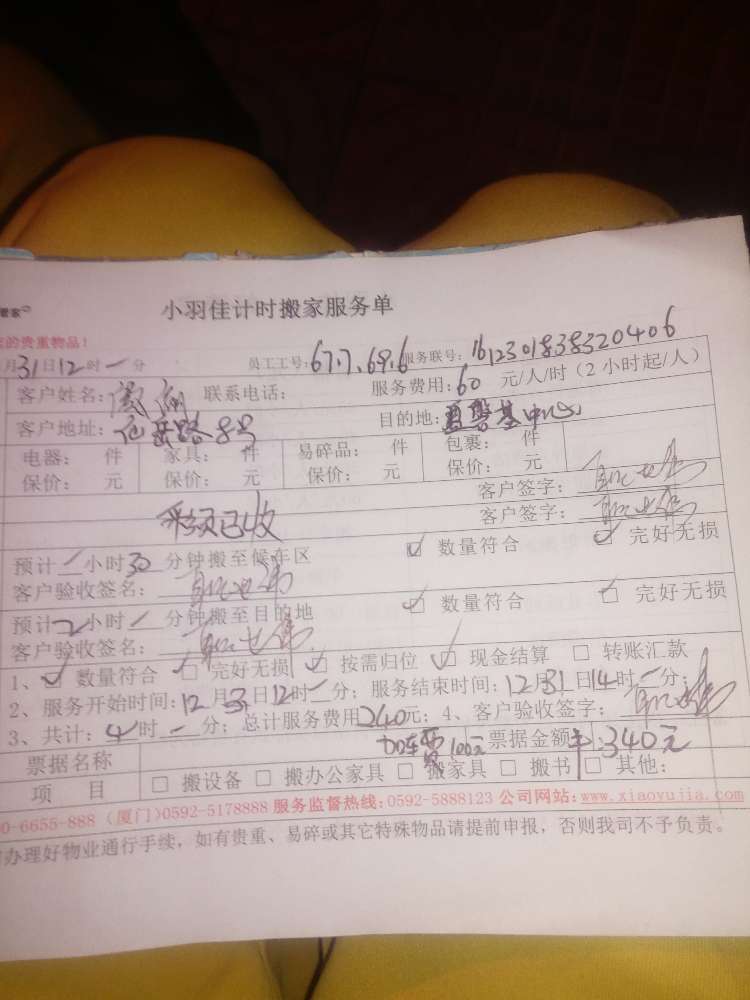 管家
小羽佳计时搬家服务单
的贵重物品！
月31日12时一分 员工工号：67.7.69.6 服务联号：1612301838320406
客户姓名： 联系电话： 服务费用：60 元/人/时（2 小时起/人）
客户地址：仙岳路8号 目的地：中心
电器： 件 家具： 件 易碎品： 件 包裹： 件
保价： 元 保价： 元 保价： 元 保价： 元
客户签字：
客户签字：
款项已收
预计一小时30分钟搬至候车区 ☑ 数量符合 ☑ 完好无损
客户验收签名：
预计2小时一分钟搬至目的地 ☑ 数量符合 ☑ 完好无损
客户验收签名：
1、☑ 数量符合 ☑ 完好无损 ☑ 按需归位 ☑ 现金结算 □ 转账汇款
2、服务开始时间：12月31日12时一分；服务结束时间：12月31日14时一分；
3、共计：4时一分；总计服务费用240元；4、客户验收签字：
票据名称 加车费100元 票据金额：340元
项 目 □ 搬设备 □ 搬办公家具 □ 搬家具 □ 搬书 □ 其他：
0-6655-888（厦门）0592-5178888 服务监督热线：0592-5888123 公司网站：www.xiaoyujia.com
办理好物业通行手续，如有贵重、易碎或其它特殊物品请提前申报，否则我司不予负责。